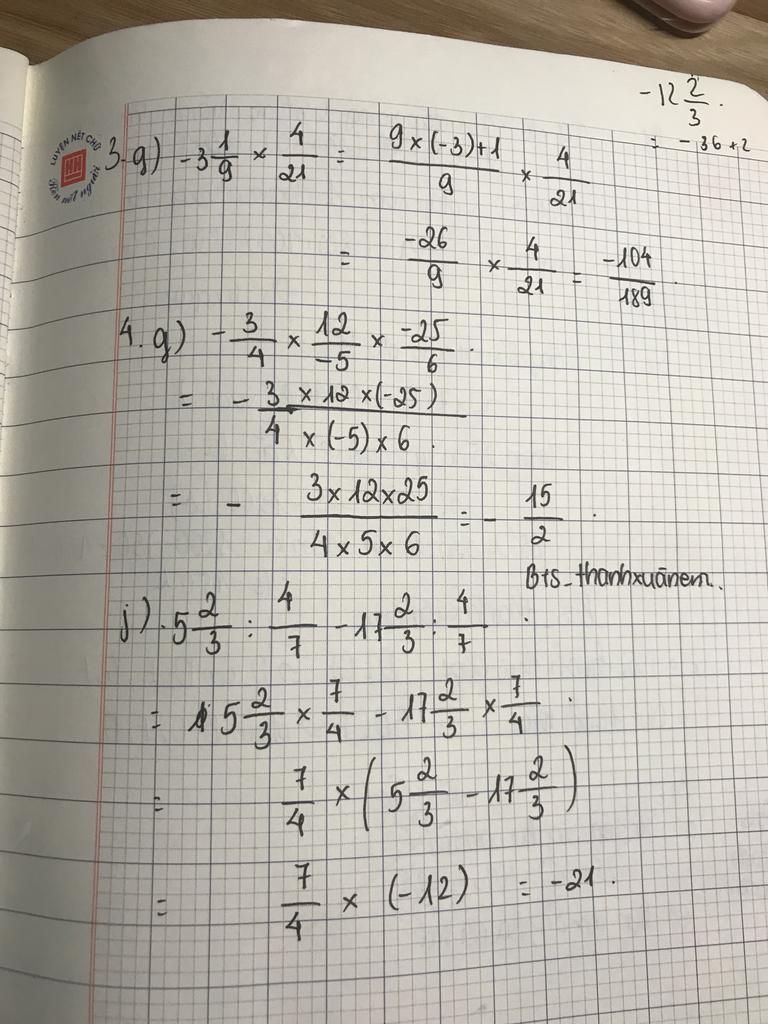 -12 2/3.
= -36+2
LUYỆN NÉT CHỮ
Rèn nết người
3.g) -3 1/9 × 4/21 = (9×(-3)+1)/9 × 4/21
= -26/9 × 4/21 = -104/189.
4.g) -3/4 × 12/-5 × -25/6.
= - (3 × 12 × (-25))/(4 × (-5) × 6).
= - (3×12×25)/(4×5×6) = - 15/2.
Bts_thanhxuânem.
j). 5 2/3 : 4/7 - 17 2/3 : 4/7.
= 5 2/3 × 7/4 - 17 2/3 × 7/4.
= 7/4 × (5 2/3 - 17 2/3)
= 7/4 × (-12) = -21.